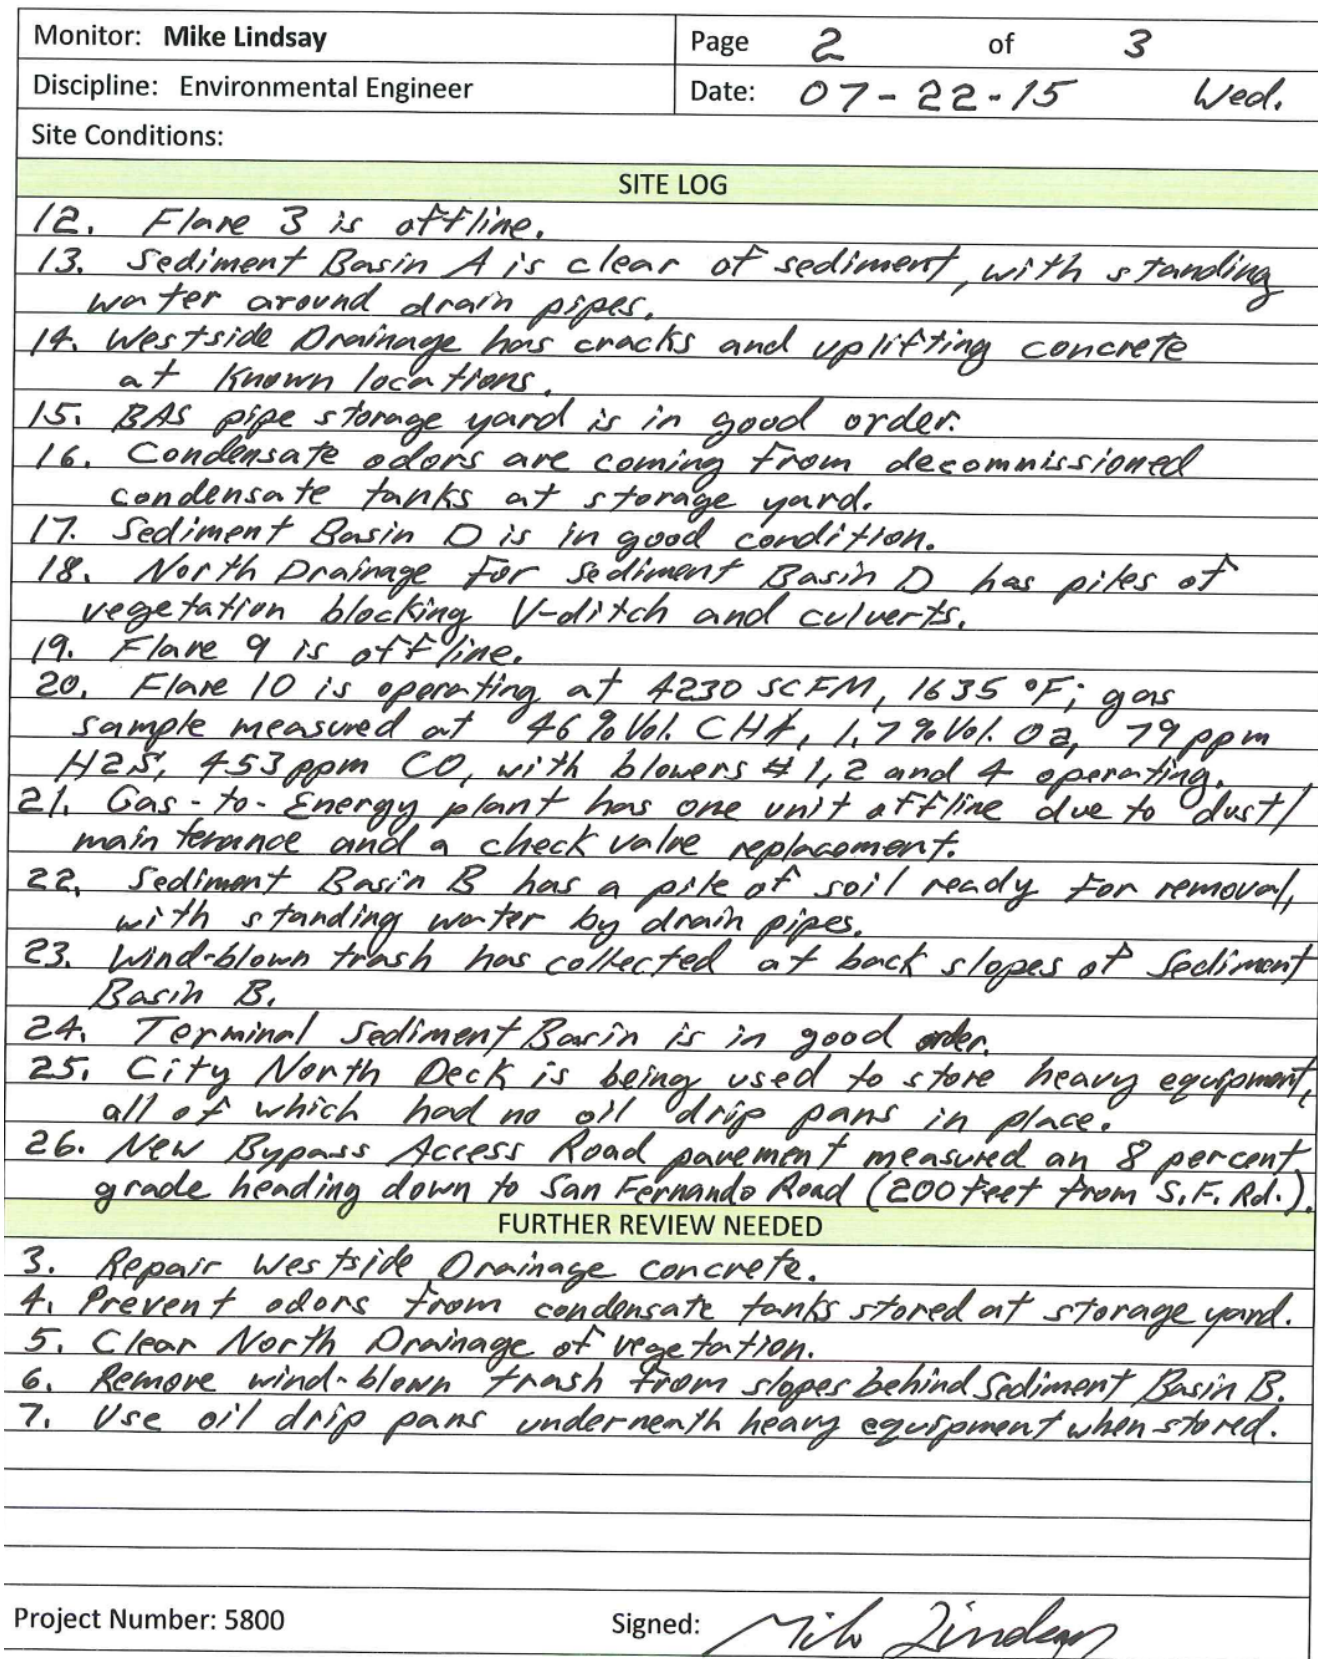 Monitor: Mike Lindsay Page 2 of 3
Discipline: Environmental Engineer Date: 07-22-15 Wed.
Site Conditions:
SITE LOG
12. Flare 3 is offline.
13. Sediment Basin A is clear of sediment, with standing
water around drain pipes.
14. Westside Drainage has cracks and uplifting concrete
at known locations.
15. BAS pipe storage yard is in good order.
16. Condensate odors are coming from decommissioned
condensate tanks at storage yard.
17. Sediment Basin D is in good condition.
18. North Drainage for Sediment Basin D has piles of
vegetation blocking V-ditch and culverts.
19. Flare 9 is offline.
20. Flare 10 is operating at 4230 SCFM, 1635 °F; gas
sample measured at 46 % Vol. CH4, 1.7 % Vol. O2, 79 ppm
H2S, 453 ppm CO, with blowers # 1, 2 and 4 operating.
21. Gas-to-Energy plant has one unit offline due to dust/
maintenance and a check valve replacement.
22. Sediment Basin B has a pile of soil ready for removal,
with standing water by drain pipes.
23. Wind-blown trash has collected at back slopes of Sediment
Basin B.
24. Terminal Sediment Basin is in good order.
25. City North Deck is being used to store heavy equipment,
all of which had no oil drip pans in place.
26. New Bypass Access Road pavement measured an 8 percent
grade heading down to San Fernando Road (200 feet from S.F. Rd.).
FURTHER REVIEW NEEDED
3. Repair Westside Drainage concrete.
4. Prevent odors from condensate tanks stored at storage yard.
5. Clear North Drainage of vegetation.
6. Remove wind-blown trash from slopes behind Sediment Basin B.
7. Use oil drip pans underneath heavy equipment when stored.
Project Number: 5800 Signed: Mike Lindsay